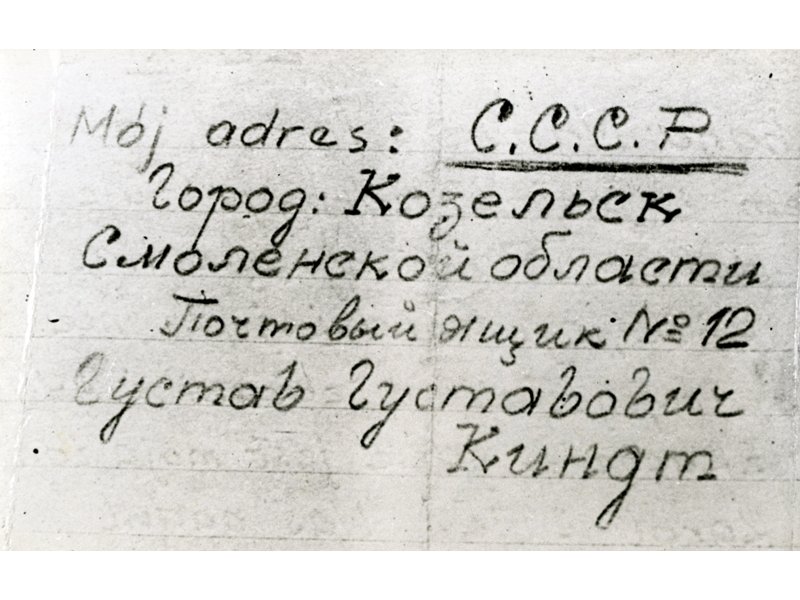 Mój adres: С.С.С.Р
Город: Козельск
Смоленской области
Почтовый ящик № 12
Густав Густавович
Киндт